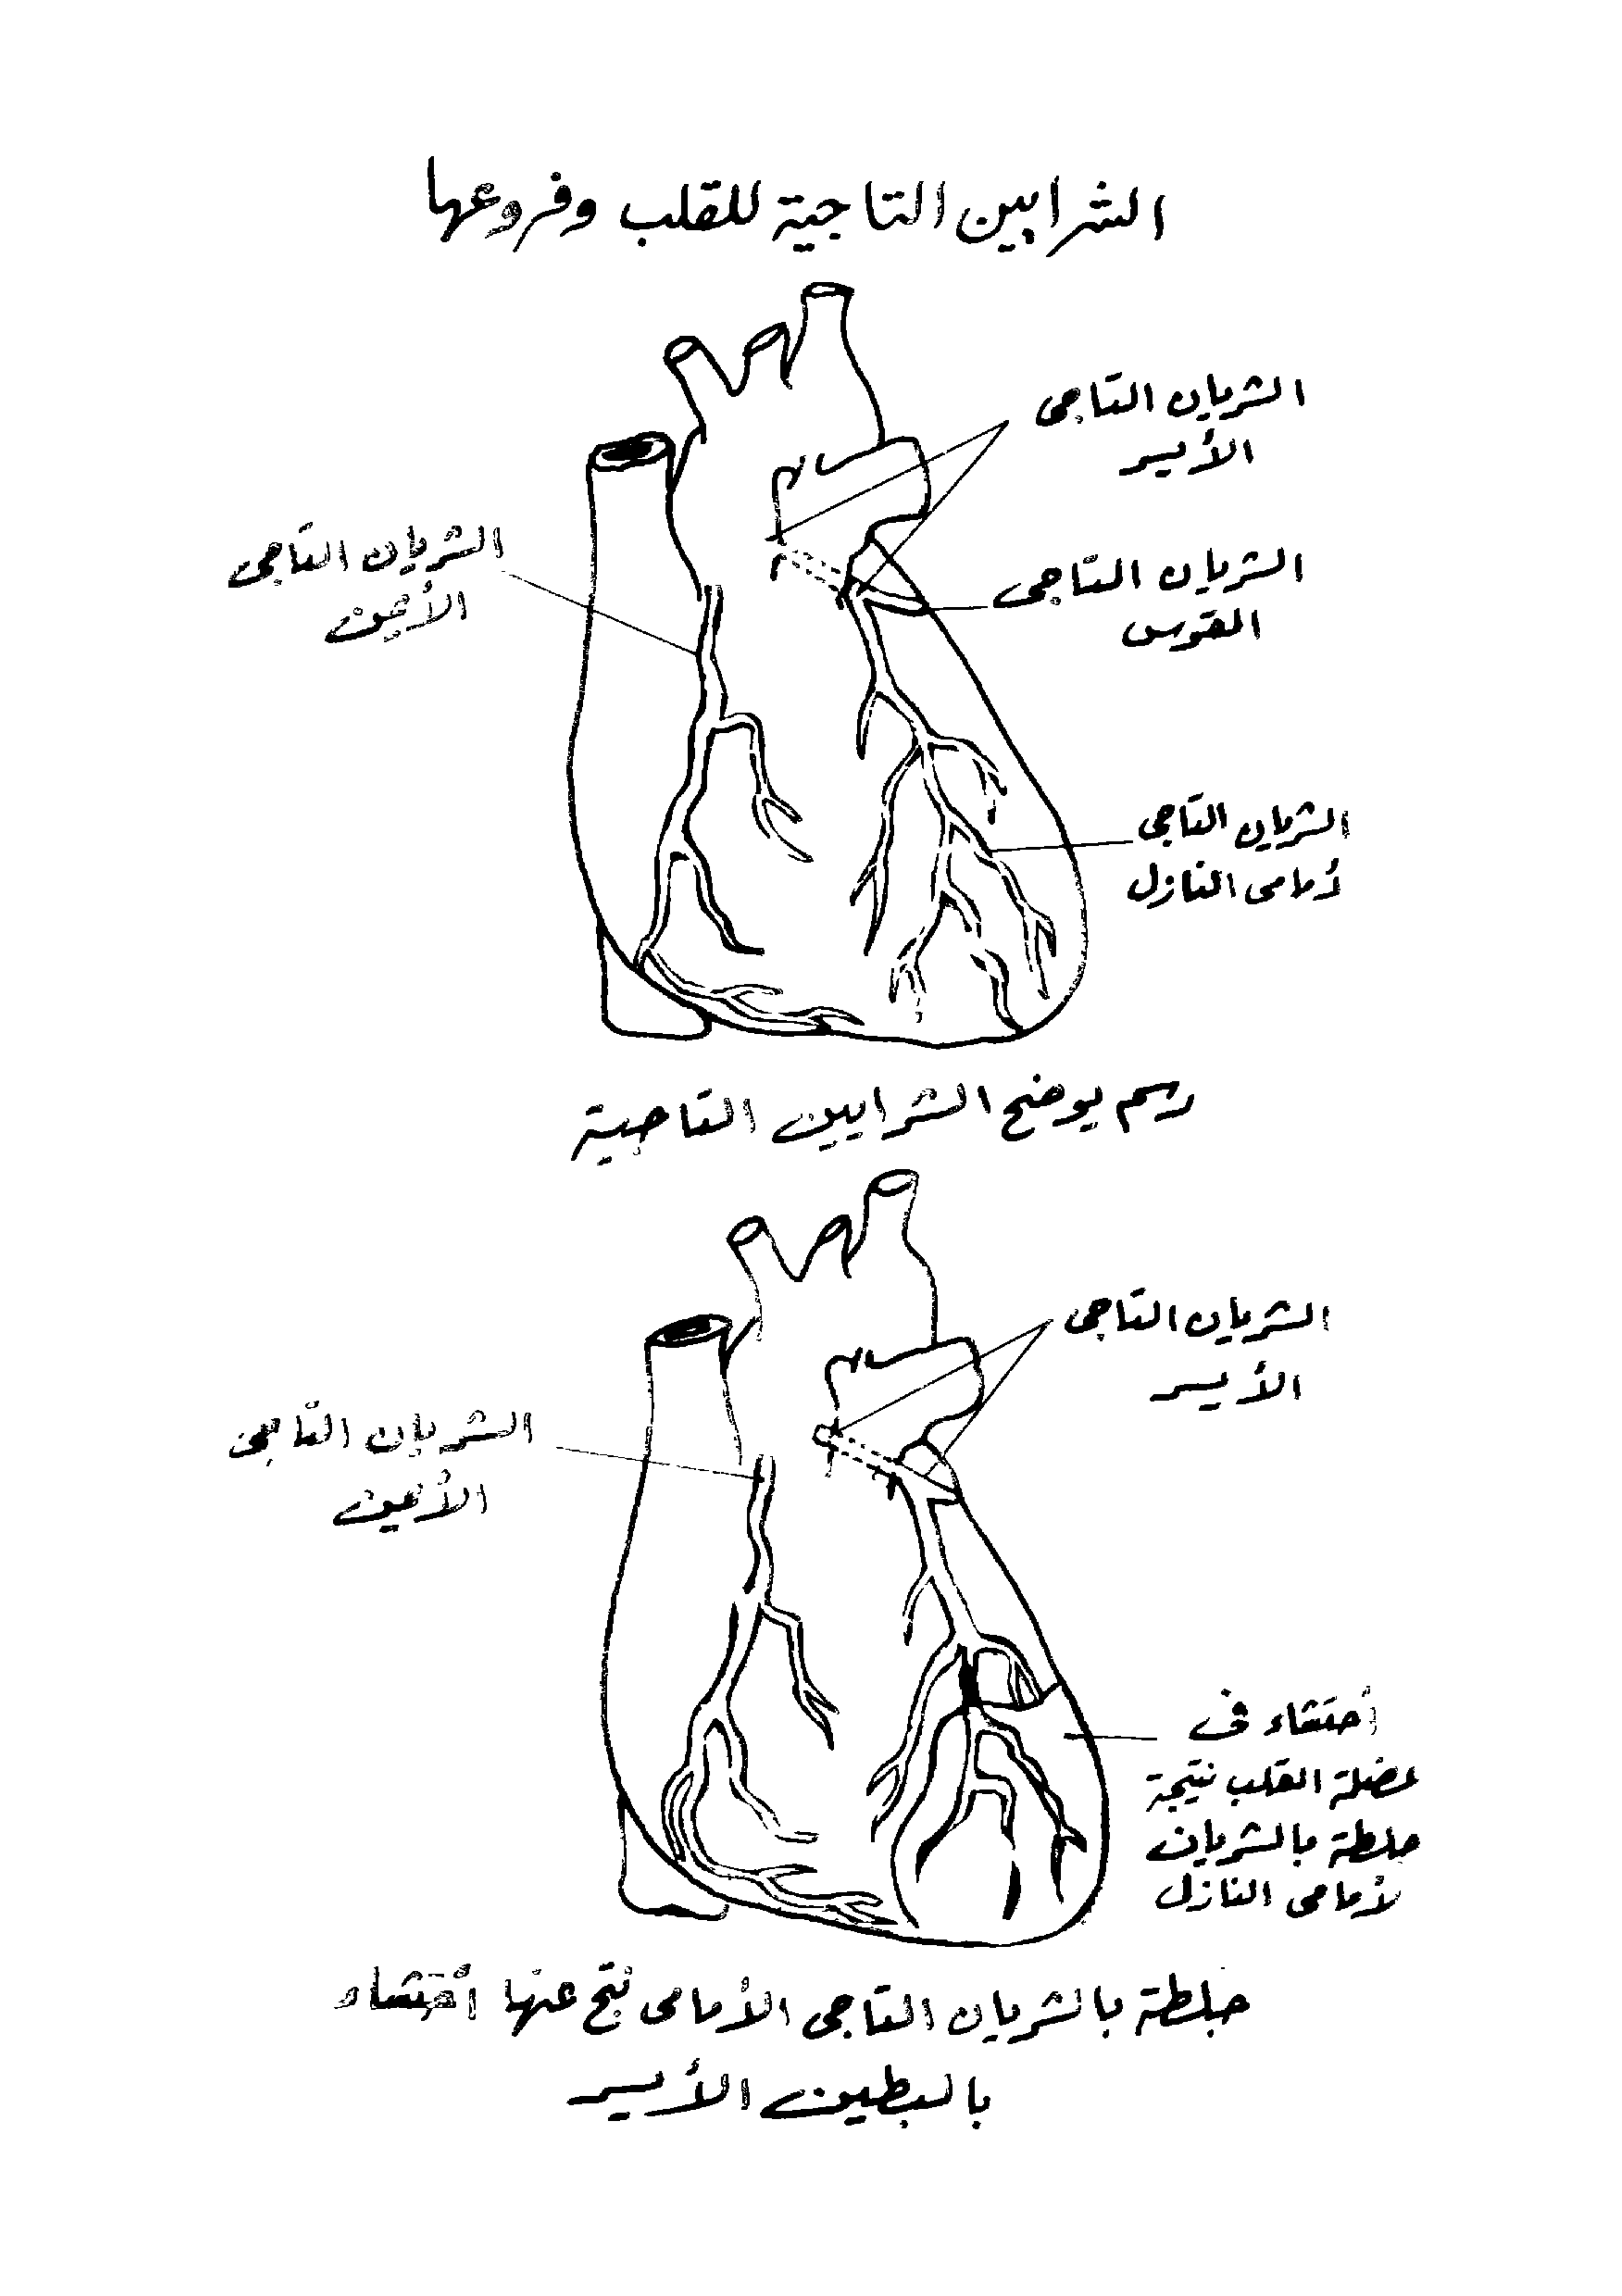 الشرايين التاجية للقلب وفروعها
الشريان التاجى
الأيسر
الشريان التاجى
الأيمن
الشريان التاجى
المقوس
الشريان التاجى
لأمامى النازل
رسم يوضح الشرايين التاجية
الشريان التاجى
الأيسر
الشريان التاجى
الأيمن
أحتشاء فى
عضلة القلب نتيجة
جلطة بالشريان
لأمامى النازل
جلطة بالشريان التاجى الأمامى نتج عنها أحتشاء
بالبطين الأيسر